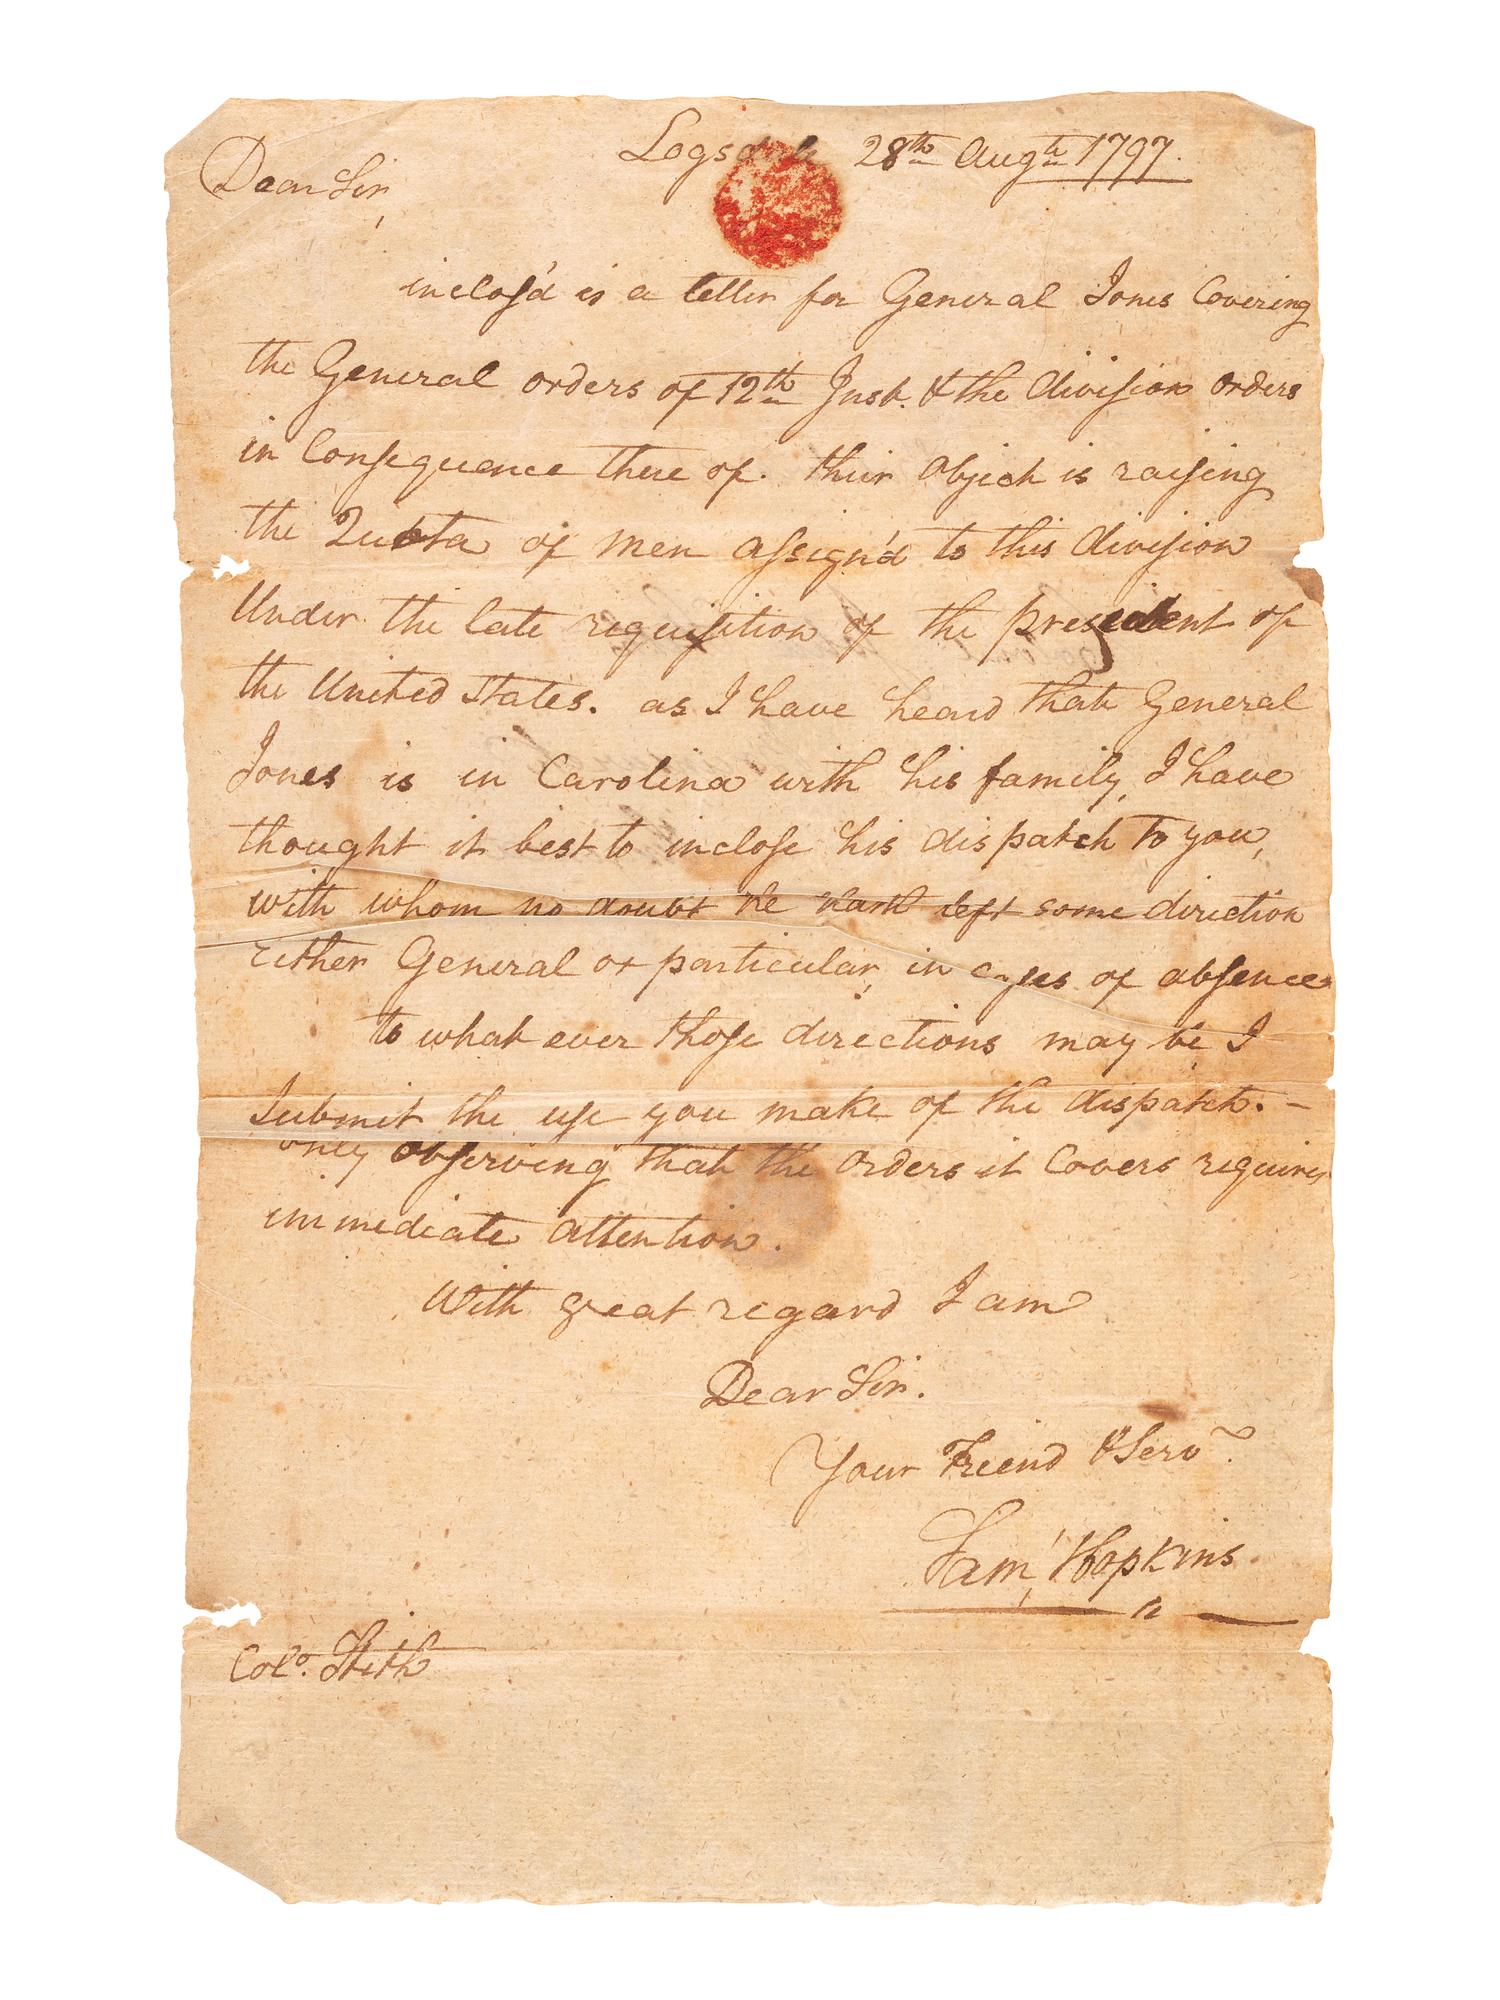 28th Augt 1797.
Dear Sir,
inclos'd is a letter for General Jones Covering
the General orders of 12th Inst. & the division orders
in Consequence there of. thier Object is raising
the Quota of men assign'd to this division
Under the late requisition of the president of
the United States. as I have heard that General
Jones is in Carolina with his family, I have
thought it best to inclose his dispatch to you,
with whom no doubt he hath left some direction
Either General or particular, in cases of absence
to what ever those directions may be I
Submit the use you make of the dispatch. –
only observing that the orders it Covers requires
immediate attention.
With great regard I am
Dear Sir.
Your Friend & Serv.
Saml Hopkins
Colo. Stith